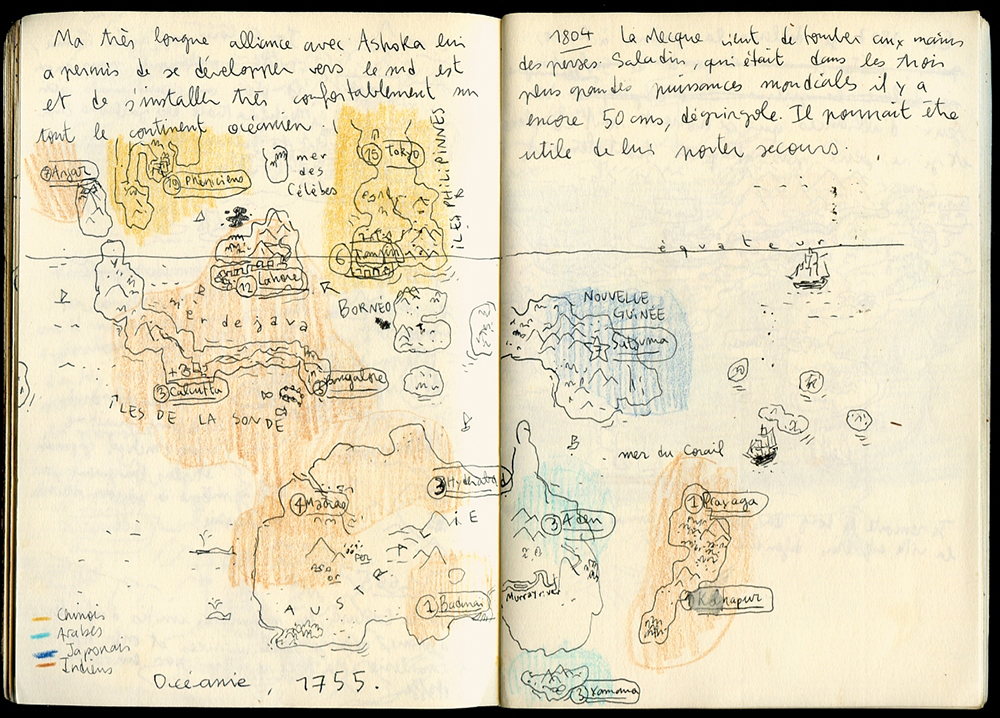 Ma très longue alliance avec Ashoka lui
a permis de se développer vers le sud est
et de s'installer très confortablement sur
tout le continent océanien.
7 Anjar
10 Phéniciens
mer
des
Célèbes
15 Tokyo
ÎLES PHILIPPINES
6
12 Lahore
BORNÉO
mer de java
3 Calcutta
2 Bangalore
ÎLES DE LA SONDE
4 Madras
3 Hyderabad
AUSTRALIE
1
Chinois
Arabes
Japonais
Indiens
Océanie, 1755.
1804 La Mecque vient de tomber aux mains
des perses. Saladin, qui était dans les trois
plus grandes puissances mondiales il y a
encore 50 ans, dégringole. Il pourrait être
utile de lui porter secours.
équateur
NOUVELLE
GUINÉE
7 Satsuma
mer du Corail
3 Aden
Murray river
1 Prayaga
Kanapur
3